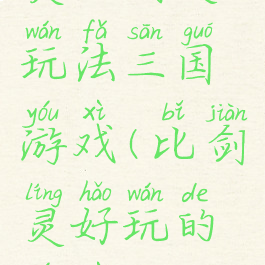 wán fǎ sān guó
玩法三国
yóu xì bǐ jiàn
游戏(比剑
líng hǎo wán de
灵好玩的